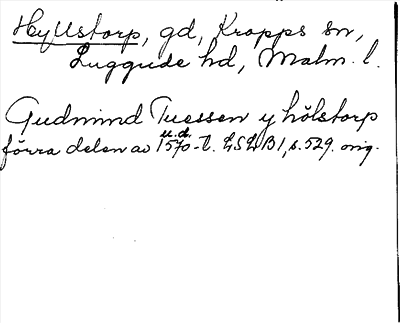 Hyllstorp, gd, Kropps sn,
Luggude hd, Malm. l.
Gudmind Tuessen y hölstorp
u.d.
förra delen av 1570-t. LSLB1, s. 529. orig.